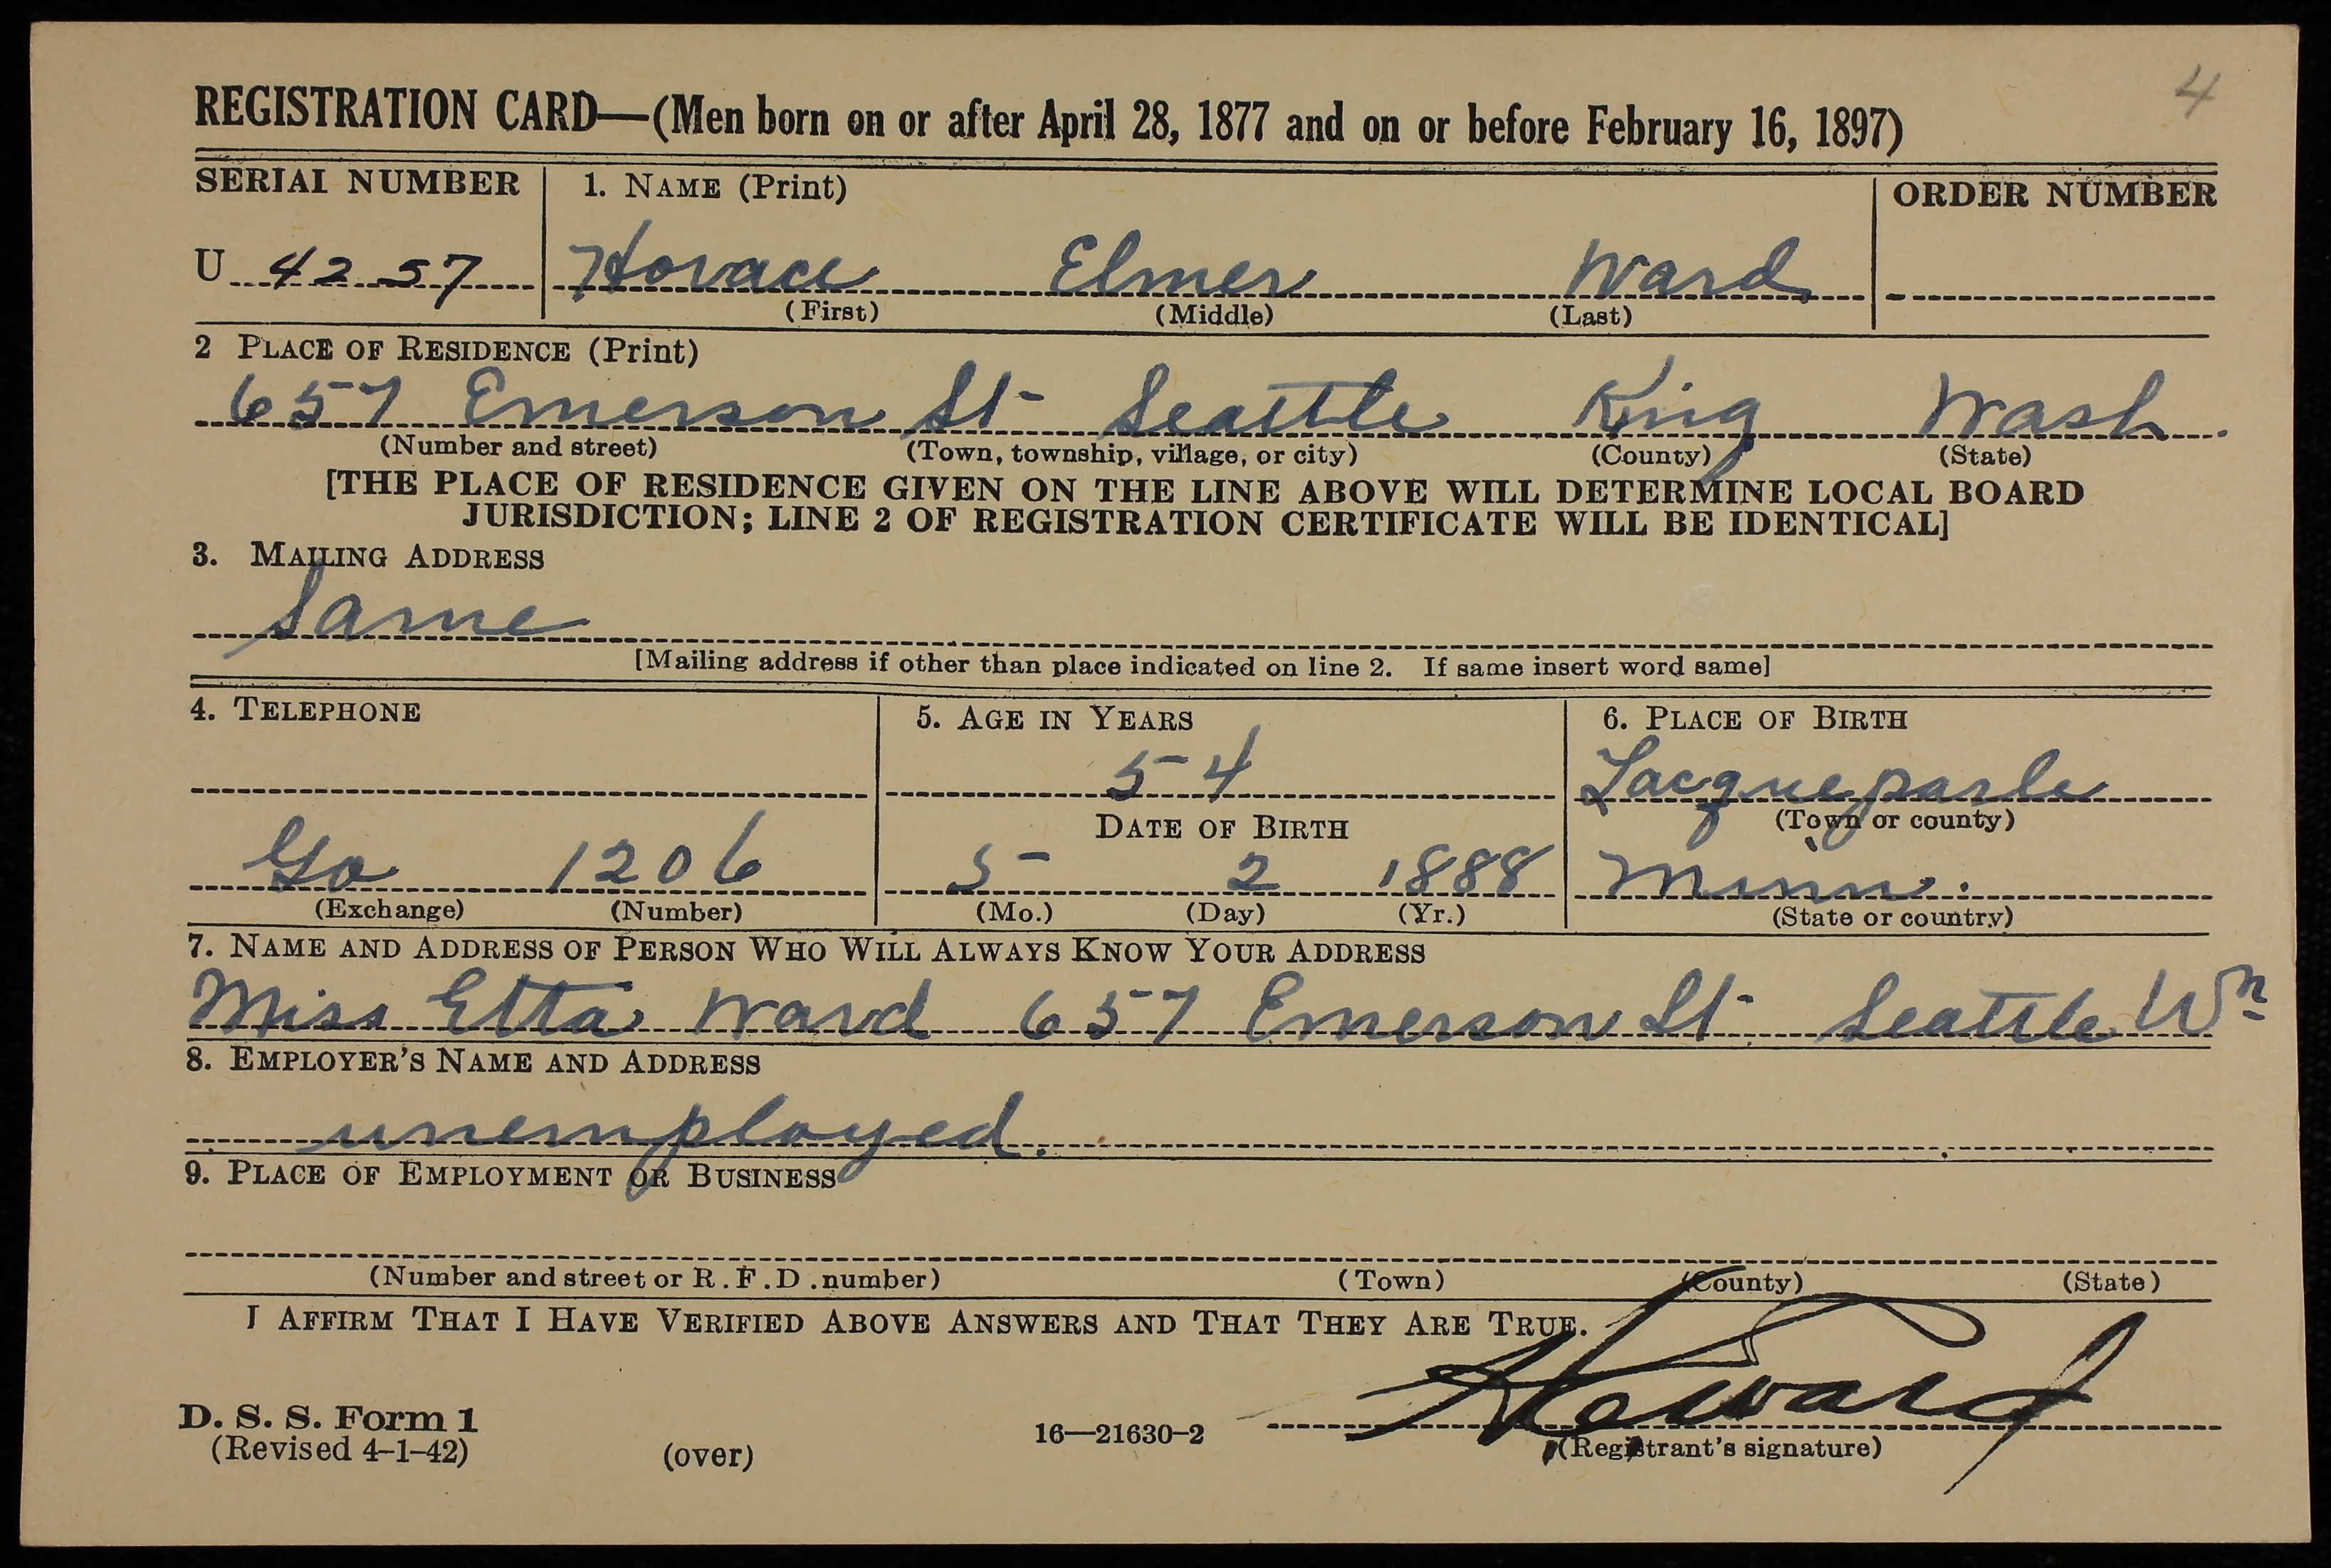 4
REGISTRATION CARD—(Men born on or after April 28, 1877 and on or before February 16, 1897)
SERIAL NUMBER 1. NAME (Print) ORDER NUMBER
U 4257 Horace Elmer Ward
(First) (Middle) (Last)
2 PLACE OF RESIDENCE (Print)
657 Emerson St Seattle King Wash.
(Number and street) (Town, township, village, or city) (County) (State)
[THE PLACE OF RESIDENCE GIVEN ON THE LINE ABOVE WILL DETERMINE LOCAL BOARD
JURISDICTION; LINE 2 OF REGISTRATION CERTIFICATE WILL BE IDENTICAL]
3. MAILING ADDRESS
Same
[Mailing address if other than place indicated on line 2. If same insert word same]
4. TELEPHONE 5. AGE IN YEARS 6. PLACE OF BIRTH
54 Lacqueparle
DATE OF BIRTH (Town or county)
Ga 1206 5 2 1888 Minn.
(Exchange) (Number) (Mo.) (Day) (Yr.) (State or country)
7. NAME AND ADDRESS OF PERSON WHO WILL ALWAYS KNOW YOUR ADDRESS
Miss Etta Ward 657 Emerson St. Seattle Wn
8. EMPLOYER'S NAME AND ADDRESS
unemployed.
9. PLACE OF EMPLOYMENT OR BUSINESS
(Number and street or R. F. D. number) (Town) (County) (State)
I AFFIRM THAT I HAVE VERIFIED ABOVE ANSWERS AND THAT THEY ARE TRUE.
HeWard
D. S. S. Form 1
(Revised 4-1-42) (over) 16—21630-2 (Registrant's signature)